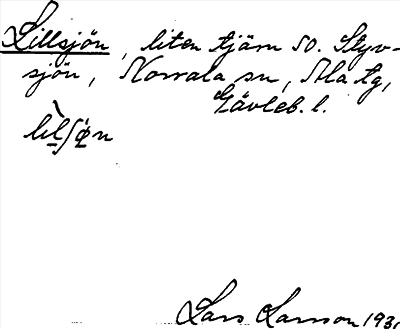 Lillsjön, liten tjärn so. Styv-
sjön, Norrala sn, Ala tg,
Gävleb. l.
Lars Larsson 193